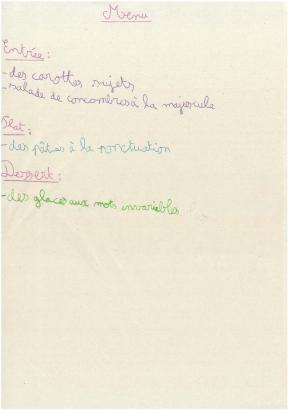 Menu
Entrée :
- des carottes sujets
- salade de concombres à la majuscule
Plat :
- des pâtes à la ponctuation
Dessert :
- des glaces aux mots invariables